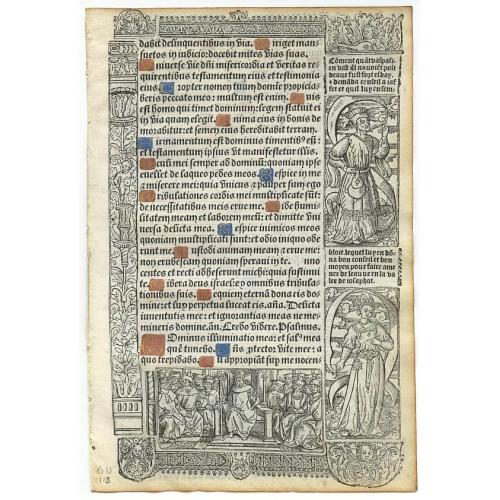 dabit delinquentibus in via. iriget man⸗
suetos in iudicio: docebit mites vias suas.
niuerse vie dñi misericordia et veritas re
quirentibus testamentum eius et testimonia
eius. ropter nomen tuum domine propicia⸗
beris peccato meo: multum est enim. uis
est homo qui timet dominum: legem statuit ei
in via quam elegit. nima eius in bonis de
morabitur: et semen eius hereditabit terram.
irmamentum est dominus timentibꝰ eũ:
et testamentum ipsius vt manifestetur illis.
culi mei semper ad dominũ: quoniam ipse
euellet de laqueo pedes meos. espice in me
et miserere mei: quia vnicus et pauper sum ego
ribulationes cordis mei multiplicate sũt:
de necessitatibus meis erue me. ide humi⸗
litatem meam et laborem meũ: et dimitte vni
uersa delicta mea. espice inimicos meos
quoniam multiplicati sunt: et odio iniquo ode
runt me. ustodi animam meam et erue me:
non erubescam quoniam speraui in te. nno
centes et recti adheserunt michi: quia sustinui
te. ibera deus israel ex omnibus tribula⸗
tionibus suis. equiem eternã dona eis do⸗
mine: et lux perpetua luceat eis. Aña. Delicta
iuuentutis mee: et ignorantias meas ne me⸗
mineris domine. añ. Credo videre. Psalmus.
Ominus illuminatio mea: et salꝰ mea
quẽ timebo. ñs ꝓtector vite mee: a
quo trepidabo. ũ appropiãt sup me nocen⸗
Cõment
demãda conseil a
bon conseil et bon
moyen pour faire
de iosaphat.
GU
113